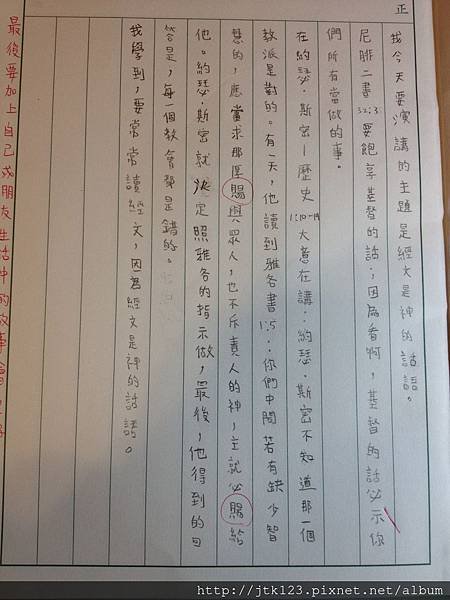 正
我今天要演講的主題是經文是神的話語。
尼腓二書32:3要飽享基督的話;因為看啊,基督的話必示你
們所有當做的事。
在約瑟·斯密—歷史1:10-14大意在講:約瑟·斯密不知道那一個
教派是對的。有一天,他讀到雅各書1:5:你們中間若有缺少智
慧的,應當求那厚賜與眾人,也不斥責人的神,主就必賜給
他。約瑟·斯密就決定照雅各的指示做,最後,他得到的回
答是,每一個教會都是錯的。
我學到,要常常讀經文,因為經文是神的話語。
最後要加上自己或朋友生活中的故事
http://jtk123.pixnet.net/album